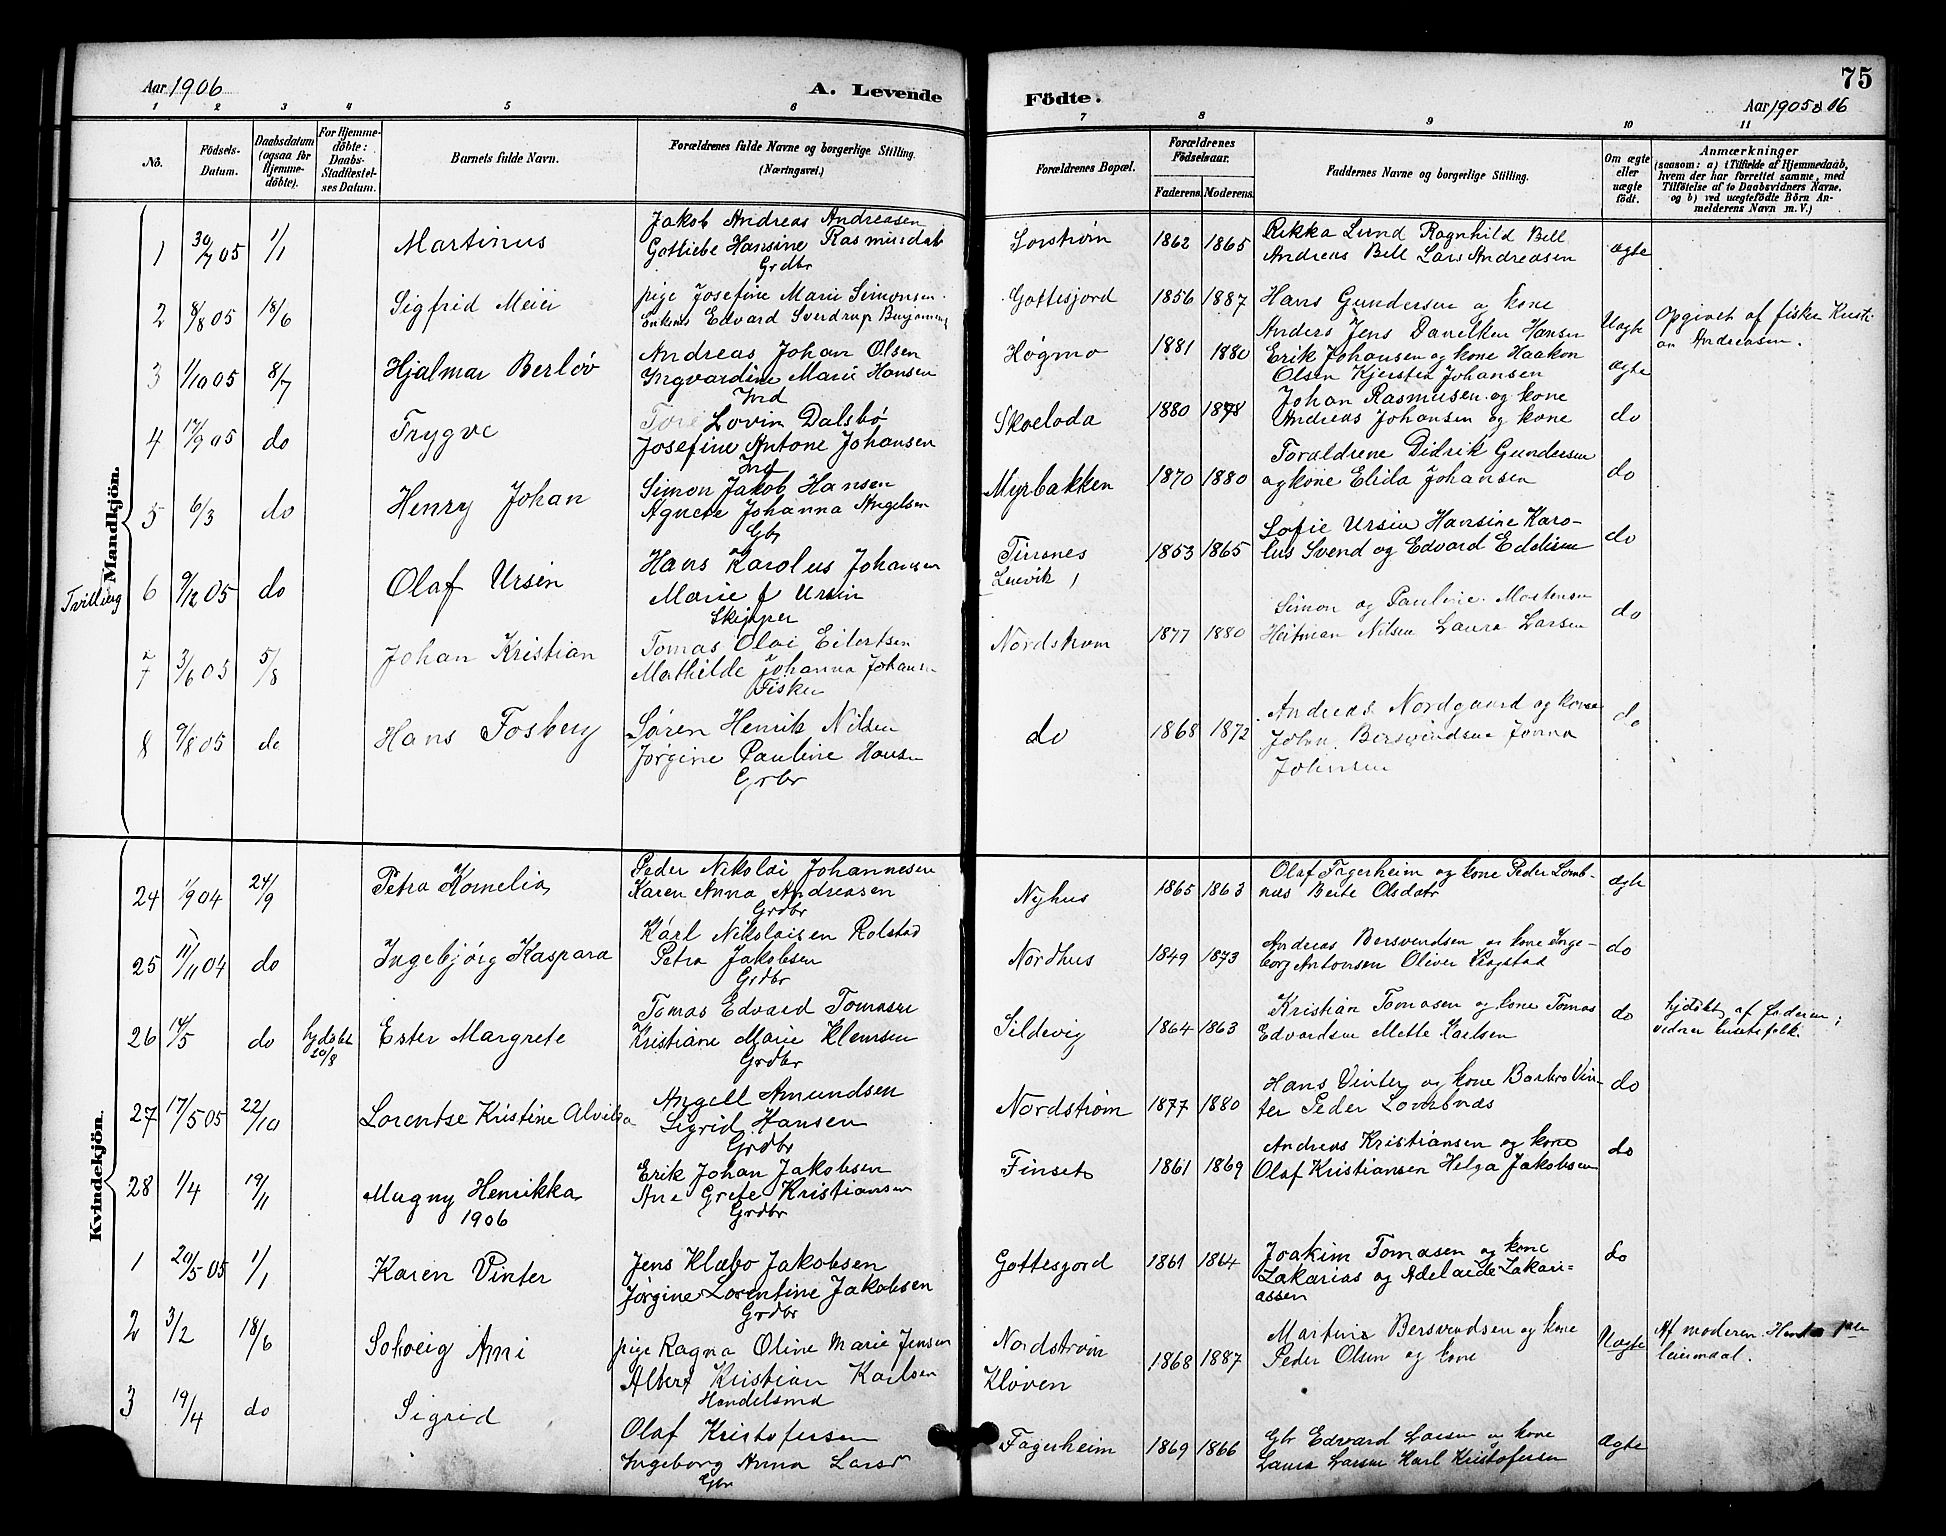 Aar 1906
A. Levende
Födte.
75
Aar 1905 & 06
1 2 3 4 5 6 7 8 9 10 11
No.
Födsels-Datum.
Daabsdatum (ogsaa for Hjemme-döbte).
For Hjemme-döbte: Daabs-Stadfæstel-ses Datum.
Barnets fulde Navn.
Forældrenes fulde Navne og borgerlige Stilling. (Næringsvei.)
Forældrenes Bopæl.
Forældrenes Födselsaar.
Faderens. Moderens.
Faddernes Navne og borgerlige Stilling.
Om ægte eller uægte født.
Anmærkninger
(saasom: a) i Tilfælde af Hjemmedaab,
hvem der har forrettet samme, med
Tilföielse af to Daabsvidners Navne.
og b) ved uægtefödte Börn An-
melderens Navn m. V.)
Mandkjön.
1 30/7 05 1/1 Martinus
Jakob Andreas Andreasen
Gotliebe Hansine Rasmusdat
Grdbr
1862 1865
Rikka Lund Ragnhild Bell
Andreas Bell Lars Andreasen
ægte
2 8/8 05 18/6 Sigfrid Meier
pige Josefine Marie Simonsen
Enkem Edvard Sverdrup
Gottesjord 1856 1887
Hans Gundersen og kone
Anders Jens Danielken Hansen
Uægte
Opgivet af fisker Kristi-
an Andreasen.
3 1/10 05 8/7 Hjalmar Berlöv
Andreas Johan Olsen
Ingvardine Marie Hansen
Ind
Høgmo 1881 1880
Erik Johansen og kone Haakon
Olsen Kjersten Johansen
ægte
4 17/9 05 do Trygve
Tore Lovin Dalsbø
Josefine Antone Johansen
Ind
1880 1878
Johan Rasmusen og kone
Andreas Johansen og kone
do
5 6/3 do Henry Johan
Simon Jakob Hansen
Agnete Johanna Angelsen
Gbr
Myrbakken 1870 1880
Foraldrene Didrik Gundersen
og kone Elida Johansen
do
Tvilling 6 9/12 05 do Olaf Ursin
Hans Karolus Johansen
Marie f Ursin
Skipper
Finsnes
Lenvik
1853 1865
Sofie Ursin Hansine Karo-
lus Svend og Edvard
do
7 3/6 05 5/8 Johan Kristian
Tomas Olai Eilertsen
Mathilde Johanna Johansen
Fisker
Nordstrøm 1877 1880
Simon og Pauline Mortensen
Heitman Nilsen Laura Larsen
do
8 9/8 05 do Hans Fosberg
Søren Henrik Nilsen
Jørgine Pauline Hansen
Grbr
do 1868 1872
Andreas Nordgaard og kone
Johan Bersvendsen Jonna
Johnsen
do
Kvindekjön.
24 1/9 04 24/9 Petra Kornelia
Peder Nikolai Johannesen
Karen Anna Andreasen
Grdbr
Nyhus 1865 1863
Olaf Fagerheim og kone Peder Lomb-
næs Berte Olsdatr
ægte
25 11/11 04 do Ingebjørg Kaspara
Karl Nikolaisen Rolstad
Petra Jakobsen
Grdbr
Nordhus 1849 1873
Andreas Bersvendsen og kone Inge-
borg Antonsen Oliver
do
26 14/5 do hjdøbt 20/8 Ester Margrete
Tomas Edvard Tomasen
Kristiane Marie Klemsen
Grdbr
Sildevig 1864 1863
Kristian Tomasen og kone Tomas
Edvardsen Mette Karlsen
do
hjdøbt af Faderen;
vidner husetsfolk.
27 17/5 05 22/10 Lorentse Kristine Alvilda
Angell Amundsen
Sigrid Hansen
Grdbr
Nordstrøm 1877 1880
Hans Vinter og kone Barbro Vin-
ter Peder Lombnæs
do
28 1/4 19/11 Magny Henrikka
Erik Johan Jakobsen
Ane Grete Kristiansen
Grdbr
Finset 1861 1869
Andreas Kristiansen og kone
Olaf Kristiansen Helga Jakobsen
do
1906
1 20/5 05 1/1 Karen Vinter
Jens Klæbo Jakobsen
Jørgine Lorentine Jakobsen
Grdbr
Gottesjord 1861 1864
Joakim Tomasen og kone
Zakarias og Adelaide Zakari-
assen
do
2 3/2 18/6 Solveig Ami
pige Ragna Oline Marie Jensen
Albert Kristian Karlsen
Handelsmd
Nordstrøm
Kløven
1868 1887
Martine Bersvendsen og kone
Peder Olsen og kone
Uægte
Af moderen. Hendes 1ste
leiermaal.
3 19/4 do Sigrid
Olaf Kristofersen
Ingeborg Anna Larsd
Gbr
Fagerheim 1869 1866
Gbr Edvard Larsen og kone
Laura Larsen Karl Kristofersen
Ægte